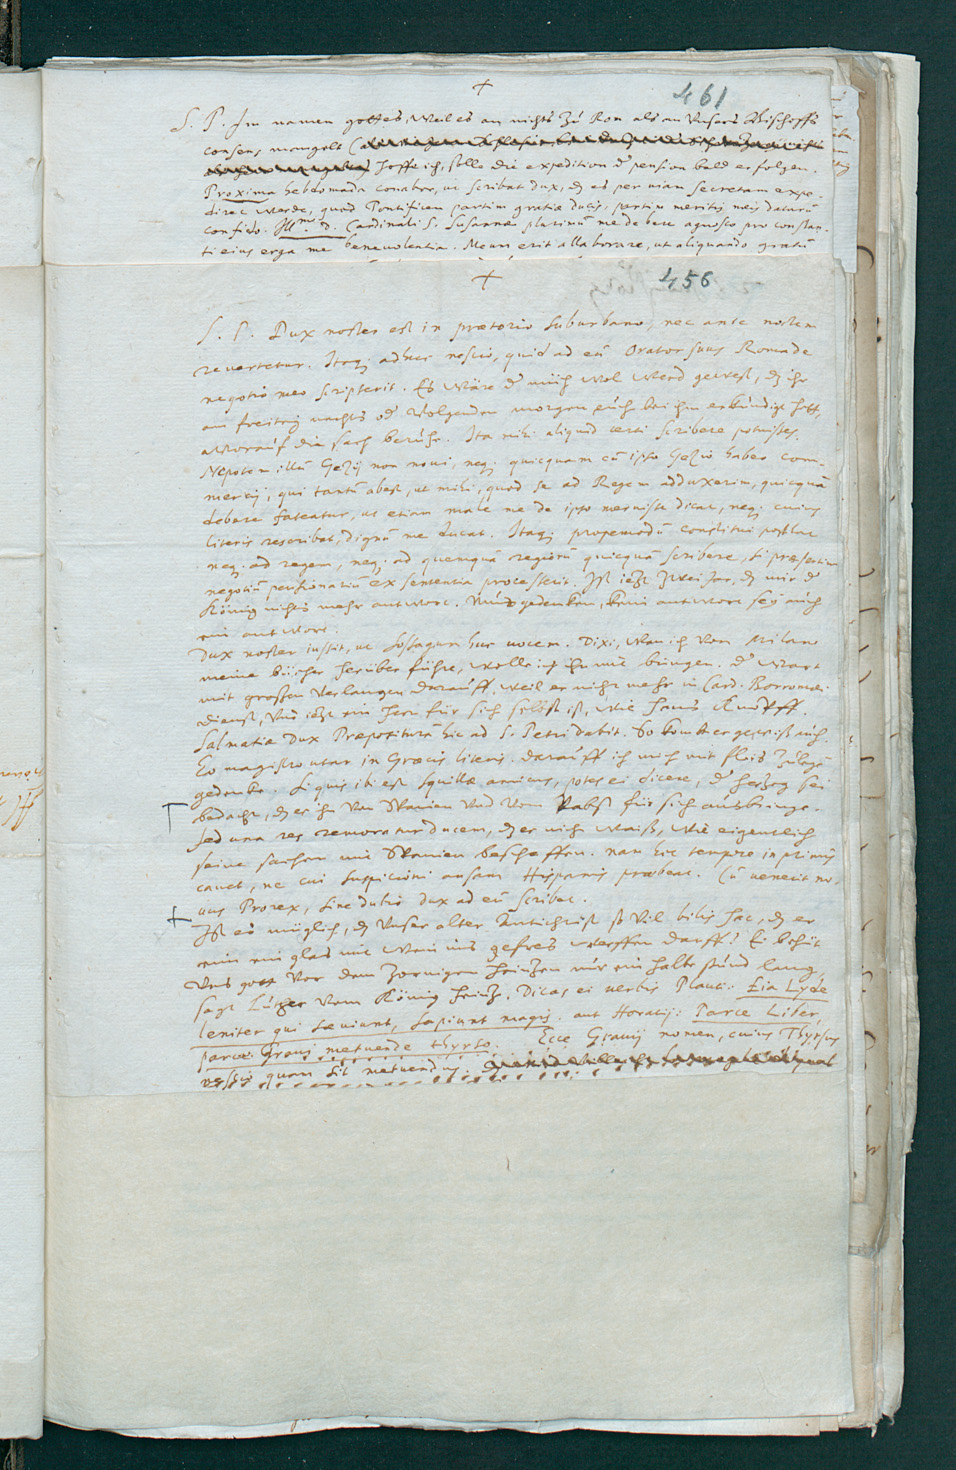 +
461
S. P. Im namen gottes, Weil es an nichts zu Rom als an Unsers Bischoffs
consens mangelt
hoffe ich, solle die expedition d' pension bald erfolgen.
Proxima hebdomada conabor, ut scribat Dux, dz es per viam secretam expe-
diret werde, quod Pontificem partim gratiæ ducis, partim meritis meis daturū
confido. Illmo. D. Cardinali S. Susannæ plurimum me debere agnosco pro constan-
ti eius erga me benevolentia. Meum erit allaborare, ut aliquando gratū
+
456
S. P. Dux noster est in prætorio suburbano, nec ante noctem
revertetur. Itaq; adhuc nescio, quid ad eū Orator suus Roma de
negotio meo scripserit. Es Wäre d' mühe wol Werd gewest, dz ihr
am freitag nachts od' Volgenden morgen euch bei ihm erkündigt hett,
Worauf die sach beruhe. Ita mihi aliquid certi scribere potuisses.
Nepotem illū non novi, neq; quicquam cū ipso habeo com-
mercij, qui tantū abest, ut mihi, quod se ad Regem adduxerim, quicquā
debere fateatur, ut etiam male me de ipso meruisse dicat, neq; cuius
literis rescribat, dignū me ducat. Itaq; propemodū constitui posthac
neq; ad regem, neq; ad quemquā regiorū quicquā scribere, si præsertim
negotiū pensionariū ex sententia processerit. Ist ietzt zwei Jar, dz mir d'
König nichts mehr antwort. Muß gedenken, kein antwort sey auch
ein antwort.
Dux noster iussit, ut huc vocem. Dixi, Wan ich von Milano
meine bücher herüber führe, wolle ich ihn mit bringen. d' wart
mit grossen Verlangen darauff, weil er nicht mehr in Card. Borromæi
dienst, Und ietzt ein herr für sich selbst ist, wie hans
Salmatiæ Dux Præposituram hic ad S. Petri dabit. So kombt er gewiß auch.
Eo magistro utar in Græcis literis. darauff ich mich mit fleis zulegē
gedenke. Si quis ibi est Squillæ amicus, potes ei dicere, d' hertzog sei
bedacht, dz er ihn Von Spanien Und Vom Pabst für sich ausbringe.
Sed una res remoratur ducem, dz er nicht waiß, wie eigentlich
seine sachen mit Spanien beschaffen. nam hoc tempore inprimis
cavet, ne cui suspicioni ansam Hispanis præbeat. Cū venerit no-
vus Prorex, sine dubio Dux ad eū scribet.
Ist es müglich, dz Unser alter Antichrist so Vil bilis hat, dz er
eim ein glas mit Wein ins gefres werffen darff? Ei behüt
Uns gott Vor dem zornigen heintzen nur ein halbe stund lang,
sagt Luther vom König heintz. Dicas ei verbis Plauti: Eia Lyde
leniter qui sæviunt, sapiunt magis. aut Horatij: Parce Liber,
parce Gravi metuende thyrso. Ecce Gravij nomen, cuius Thyrsus
quam sit metuendus.